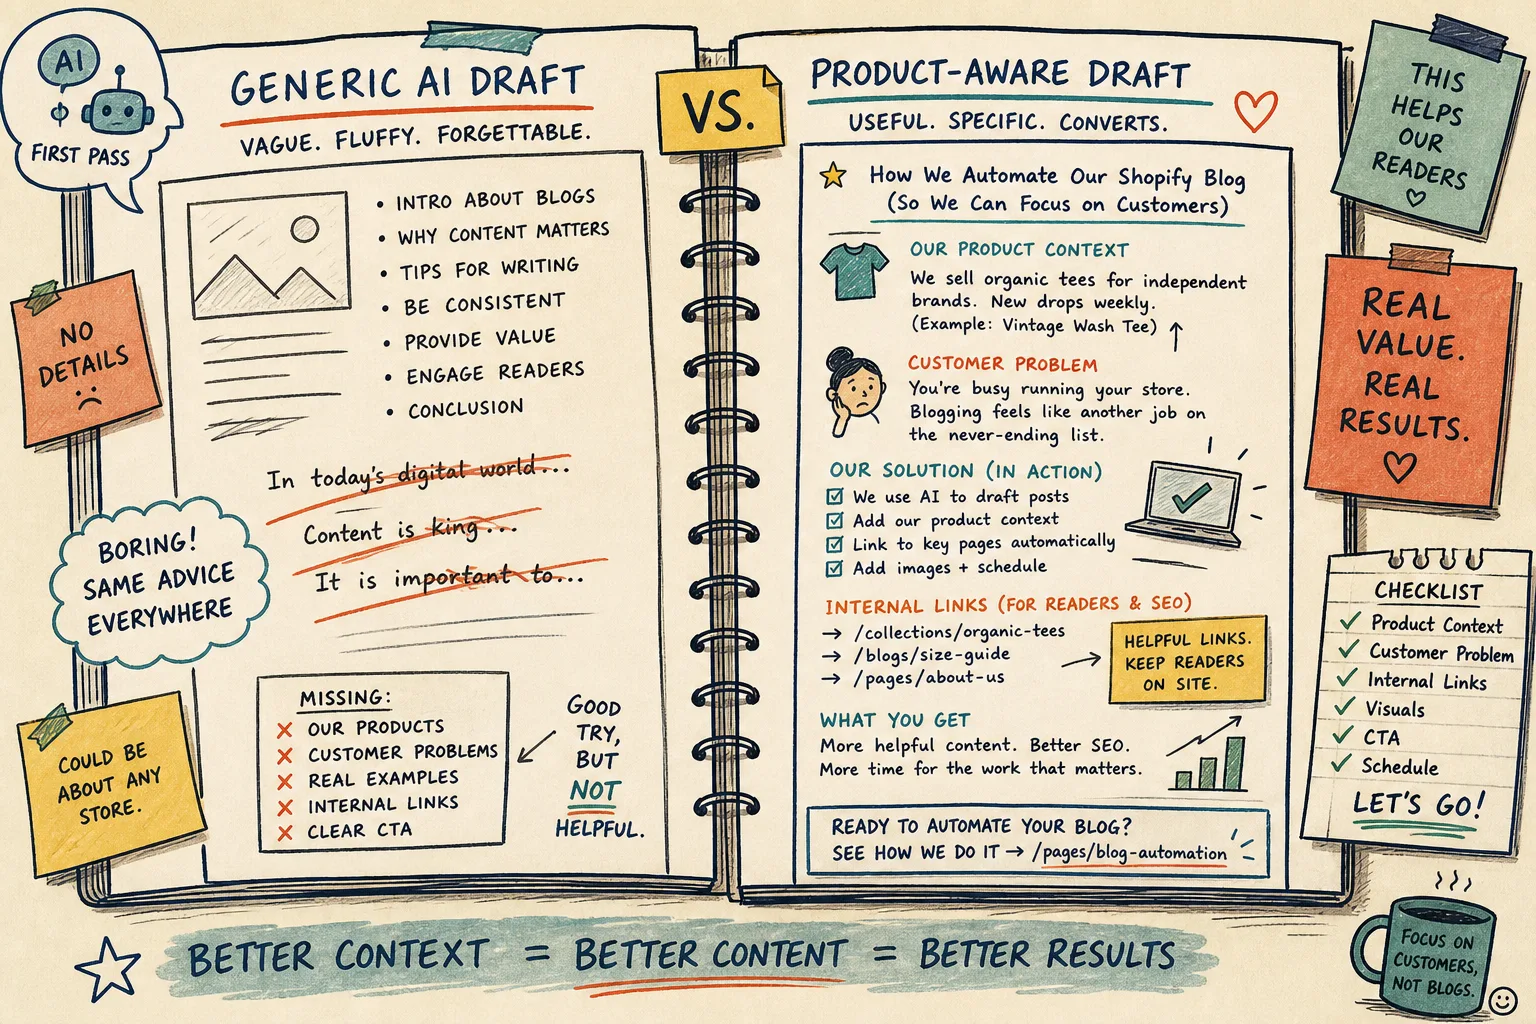 AI
FIRST PASS
GENERIC AI DRAFT
VAGUE. FLUFFY. FORGETTABLE.
• INTRO ABOUT BLOGS
• WHY CONTENT MATTERS
• TIPS FOR WRITING
• BE CONSISTENT
• PROVIDE VALUE
• ENGAGE READERS
• CONCLUSION
NO
DETAILS
In today's digital world...
Content is king...
It is important to...
BORING!
SAME ADVICE
EVERYWHERE
COULD BE
ABOUT ANY
STORE.
MISSING:
✗ OUR PRODUCTS
✗ CUSTOMER PROBLEMS
✗ REAL EXAMPLES
✗ INTERNAL LINKS
✗ CLEAR CTA
GOOD
TRY,
BUT
NOT
HELPFUL.
VS.
PRODUCT-AWARE DRAFT
USEFUL. SPECIFIC. CONVERTS.
How We Automate Our Shopify Blog
(So We Can Focus on Customers)
OUR PRODUCT CONTEXT
We sell organic tees for independent
brands. New drops weekly.
(Example: Vintage Wash Tee) ↑
CUSTOMER PROBLEM
You're busy running your store.
Blogging feels like another job on
the never-ending list.
OUR SOLUTION (IN ACTION)
☑ We use AI to draft posts
☑ Add our product context
☑ Link to key pages automatically
☑ Add images + schedule
INTERNAL LINKS (FOR READERS & SEO)
→ /collections/organic-tees
→ /blogs/size-guide
→ /pages/about-us
HELPFUL LINKS.
KEEP READERS
ON SITE.
WHAT YOU GET
More helpful content. Better SEO.
More time for the work that matters.
READY TO AUTOMATE YOUR BLOG?
SEE HOW WE DO IT → /pages/blog-automation
THIS
HELPS
OUR
READERS
♡
REAL
VALUE.
REAL
RESULTS.
♡
CHECKLIST
✓ Product Context
✓ Customer Problem
✓ Internal Links
✓ Visuals
✓ CTA
✓ Schedule
LET'S GO!
BETTER CONTEXT = BETTER CONTENT = BETTER RESULTS
FOCUS ON
CUSTOMERS,
NOT BLOGS.